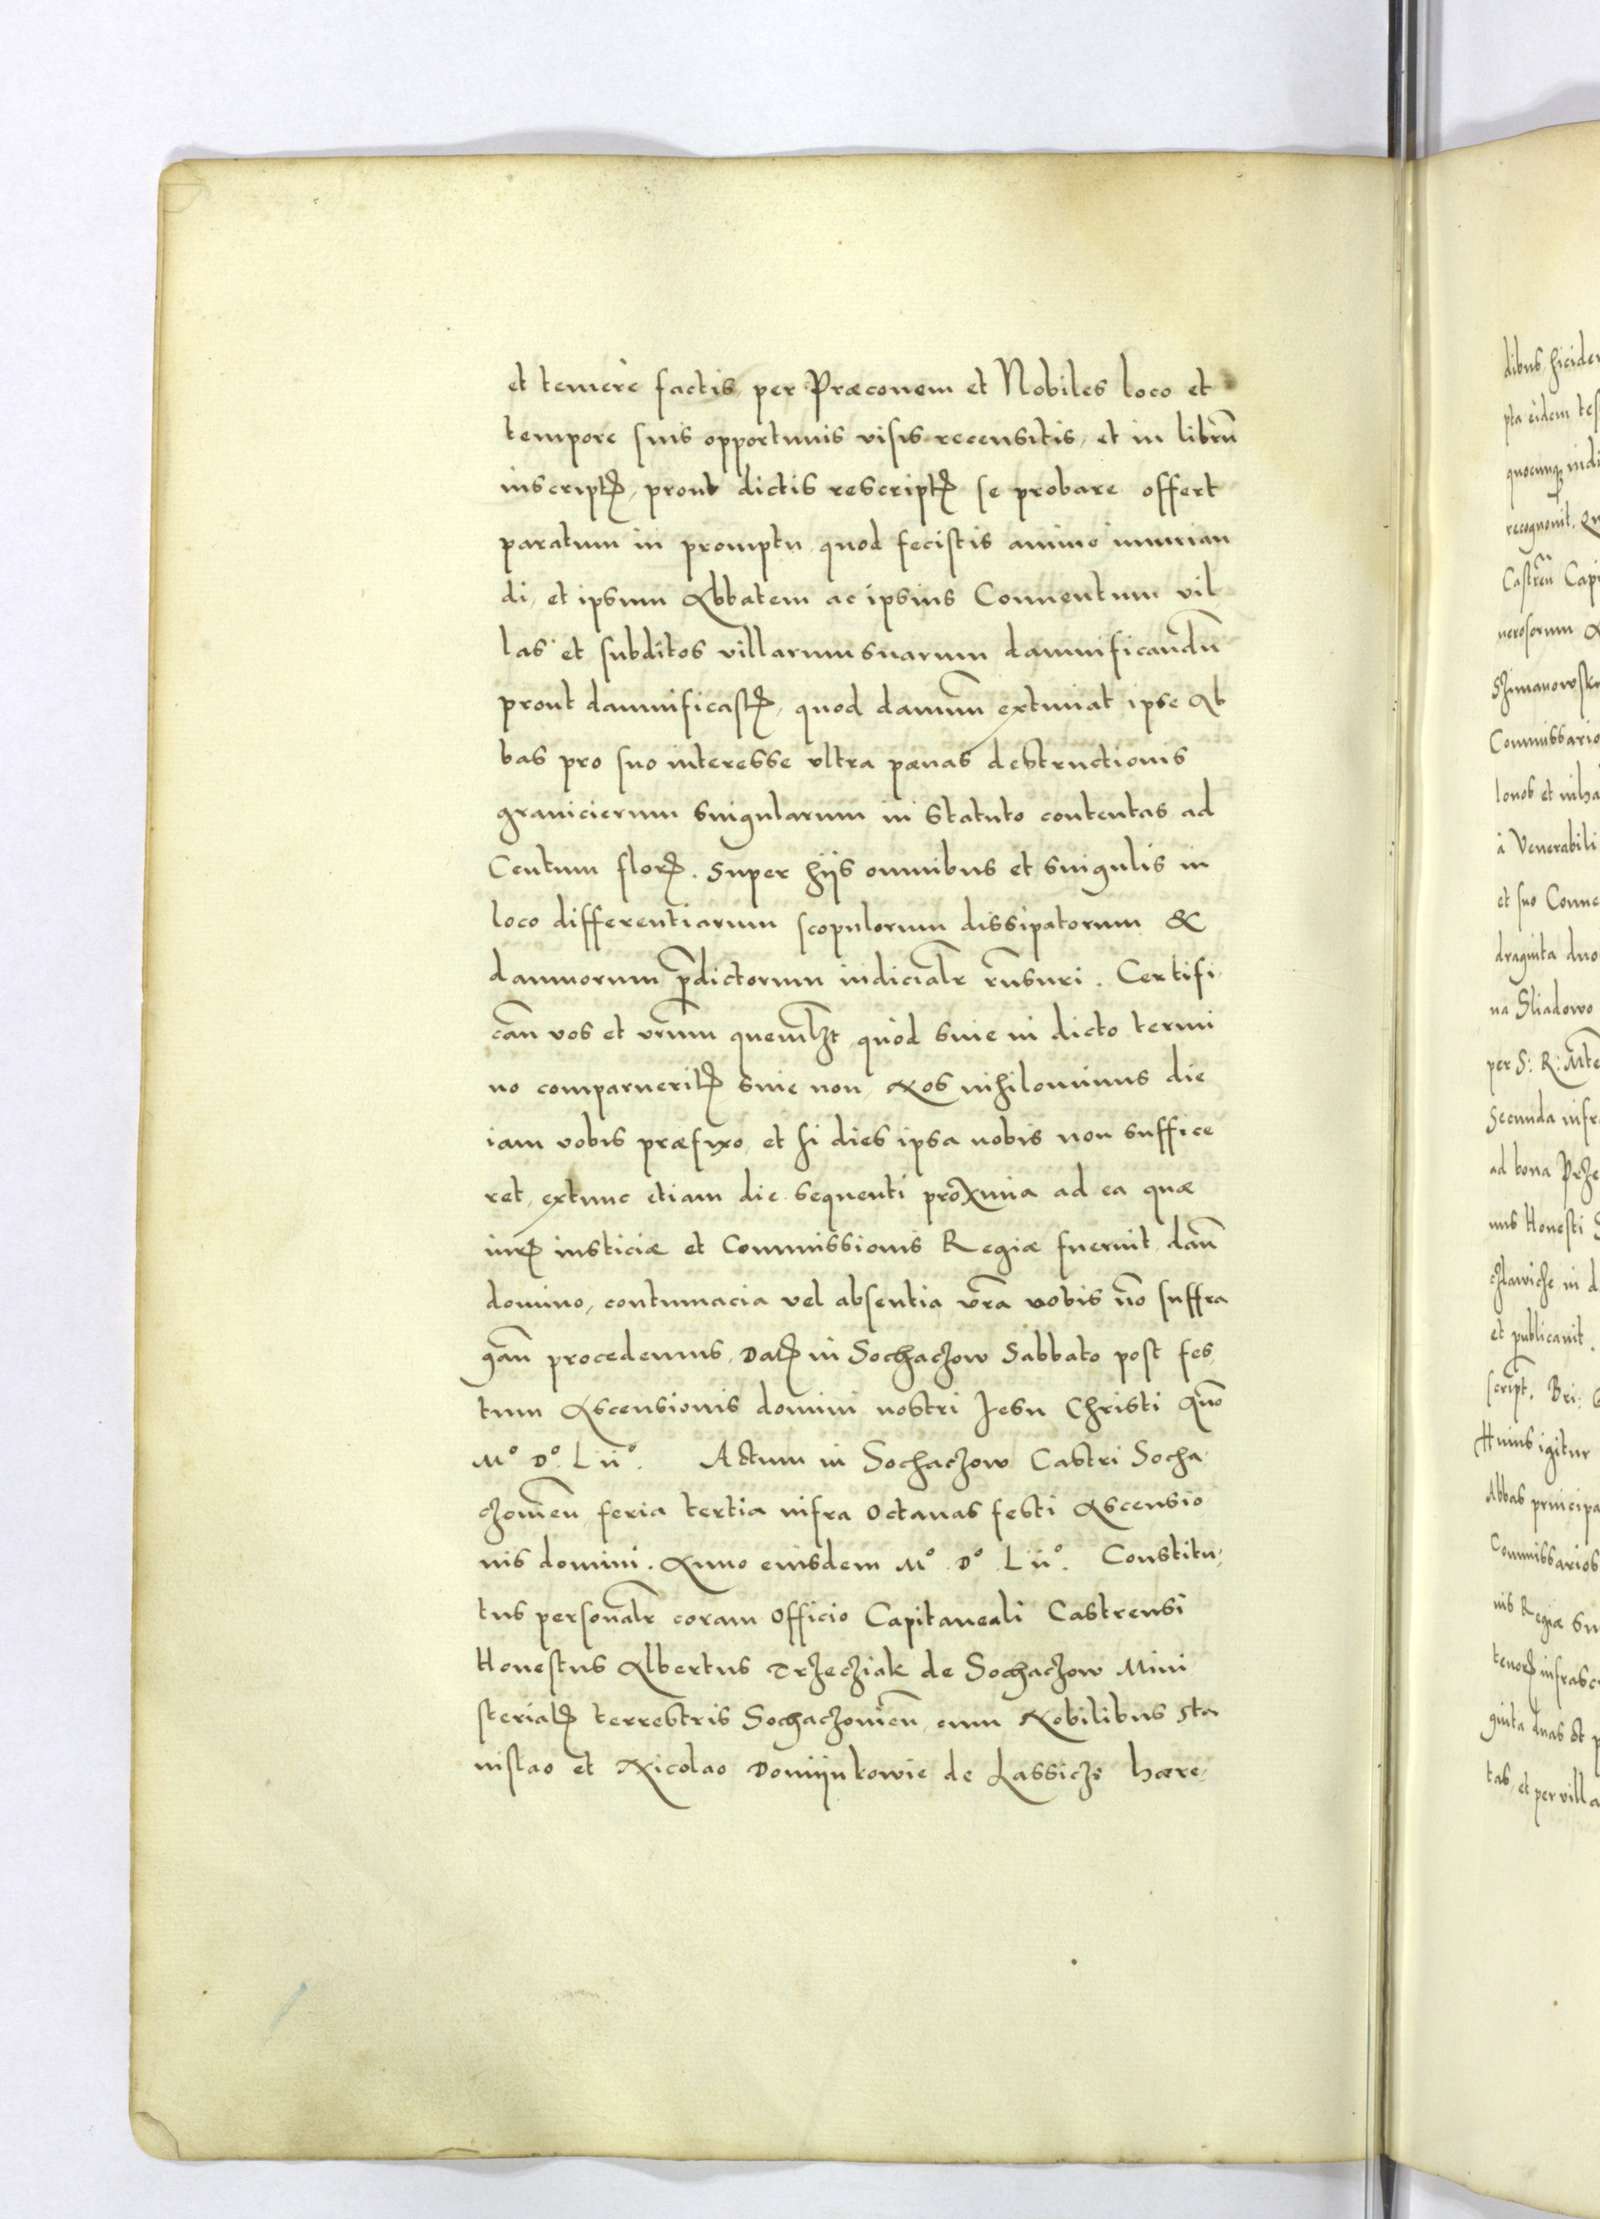 et temerè factis, per Præconem et Nobiles loco et
tempore suis opportunis visis recensitis, et in librũ
inscriptꝭ, prout dictis rescriptꝭ se probare offert
paratum in promptu, quod fecistis animo iniurian
di, et ipsum Abbatem ac ipsius Conuentum vil
las et subditos villarum suarum damnificandũ
prout damnificastꝭ, quod damnũ extimat ipse Ab
bas pro suo interesse vltra pœnas destructionis
granicierum singularum in statuto contentas ad
Centum florꝭ. Super hijs omnibus et singulis in
loco differentiarum scopulorum dissipatorum &
damnorum p̃dictorum iudicialr̃ rñsuri. Certifi,
cañ vos et vrũm quemlꝫt, quòd siue in dicto termi
no comparueritꝭ siue non, Nos nihilominus die
iam vobis præfixo, et si dies ipsa nobis non suffice
ret, extunc etiam die sequenti proxima ad ea quæ
iurꝭ iusticiæ et Commissionis Regiæ fuerint, dañ
domino, contumacia vel absentia vr̃a vobis nõ suffra
gañ procedemus. Datꝭ in Sochaczow Sabbato post fes
tum Ascensionis domini nostri Iesu Christi Anõ
Mº Dº. Lijº. Actum in Sochaczow Castri Socha
czouieñ, feria tertia infra Octauas festi Ascensio
nis domini. Anno eiusdem Mº. Dº. Lijº. Constitu,
tus personalr̃ coram Officio Capitaneali Castrensi
Honestus Albertus Trzecziak de Sochaczow Mini
sterialꝭ terrestris Sochaczouieñ, cum Nobilibus Sta
nislao et Nicolao Domijnkowie de Lassicze hære,
dibus
pta eidem
quocunqꝫ
recognouit.
Castreñ Capi
nerosorum
Commissario
et
à Venerabili
et suo Conue
draginta duo
na Sladowo
per S: R: Mte
Secunda infra
ad bona Prze
nus Honesti
in d
et publicauit.
script.
Huius igitur
Abbas principa
Commissarios
nis Regiæ su
tenorꝭ infrasc
ginta duas et p
tas, et per villa